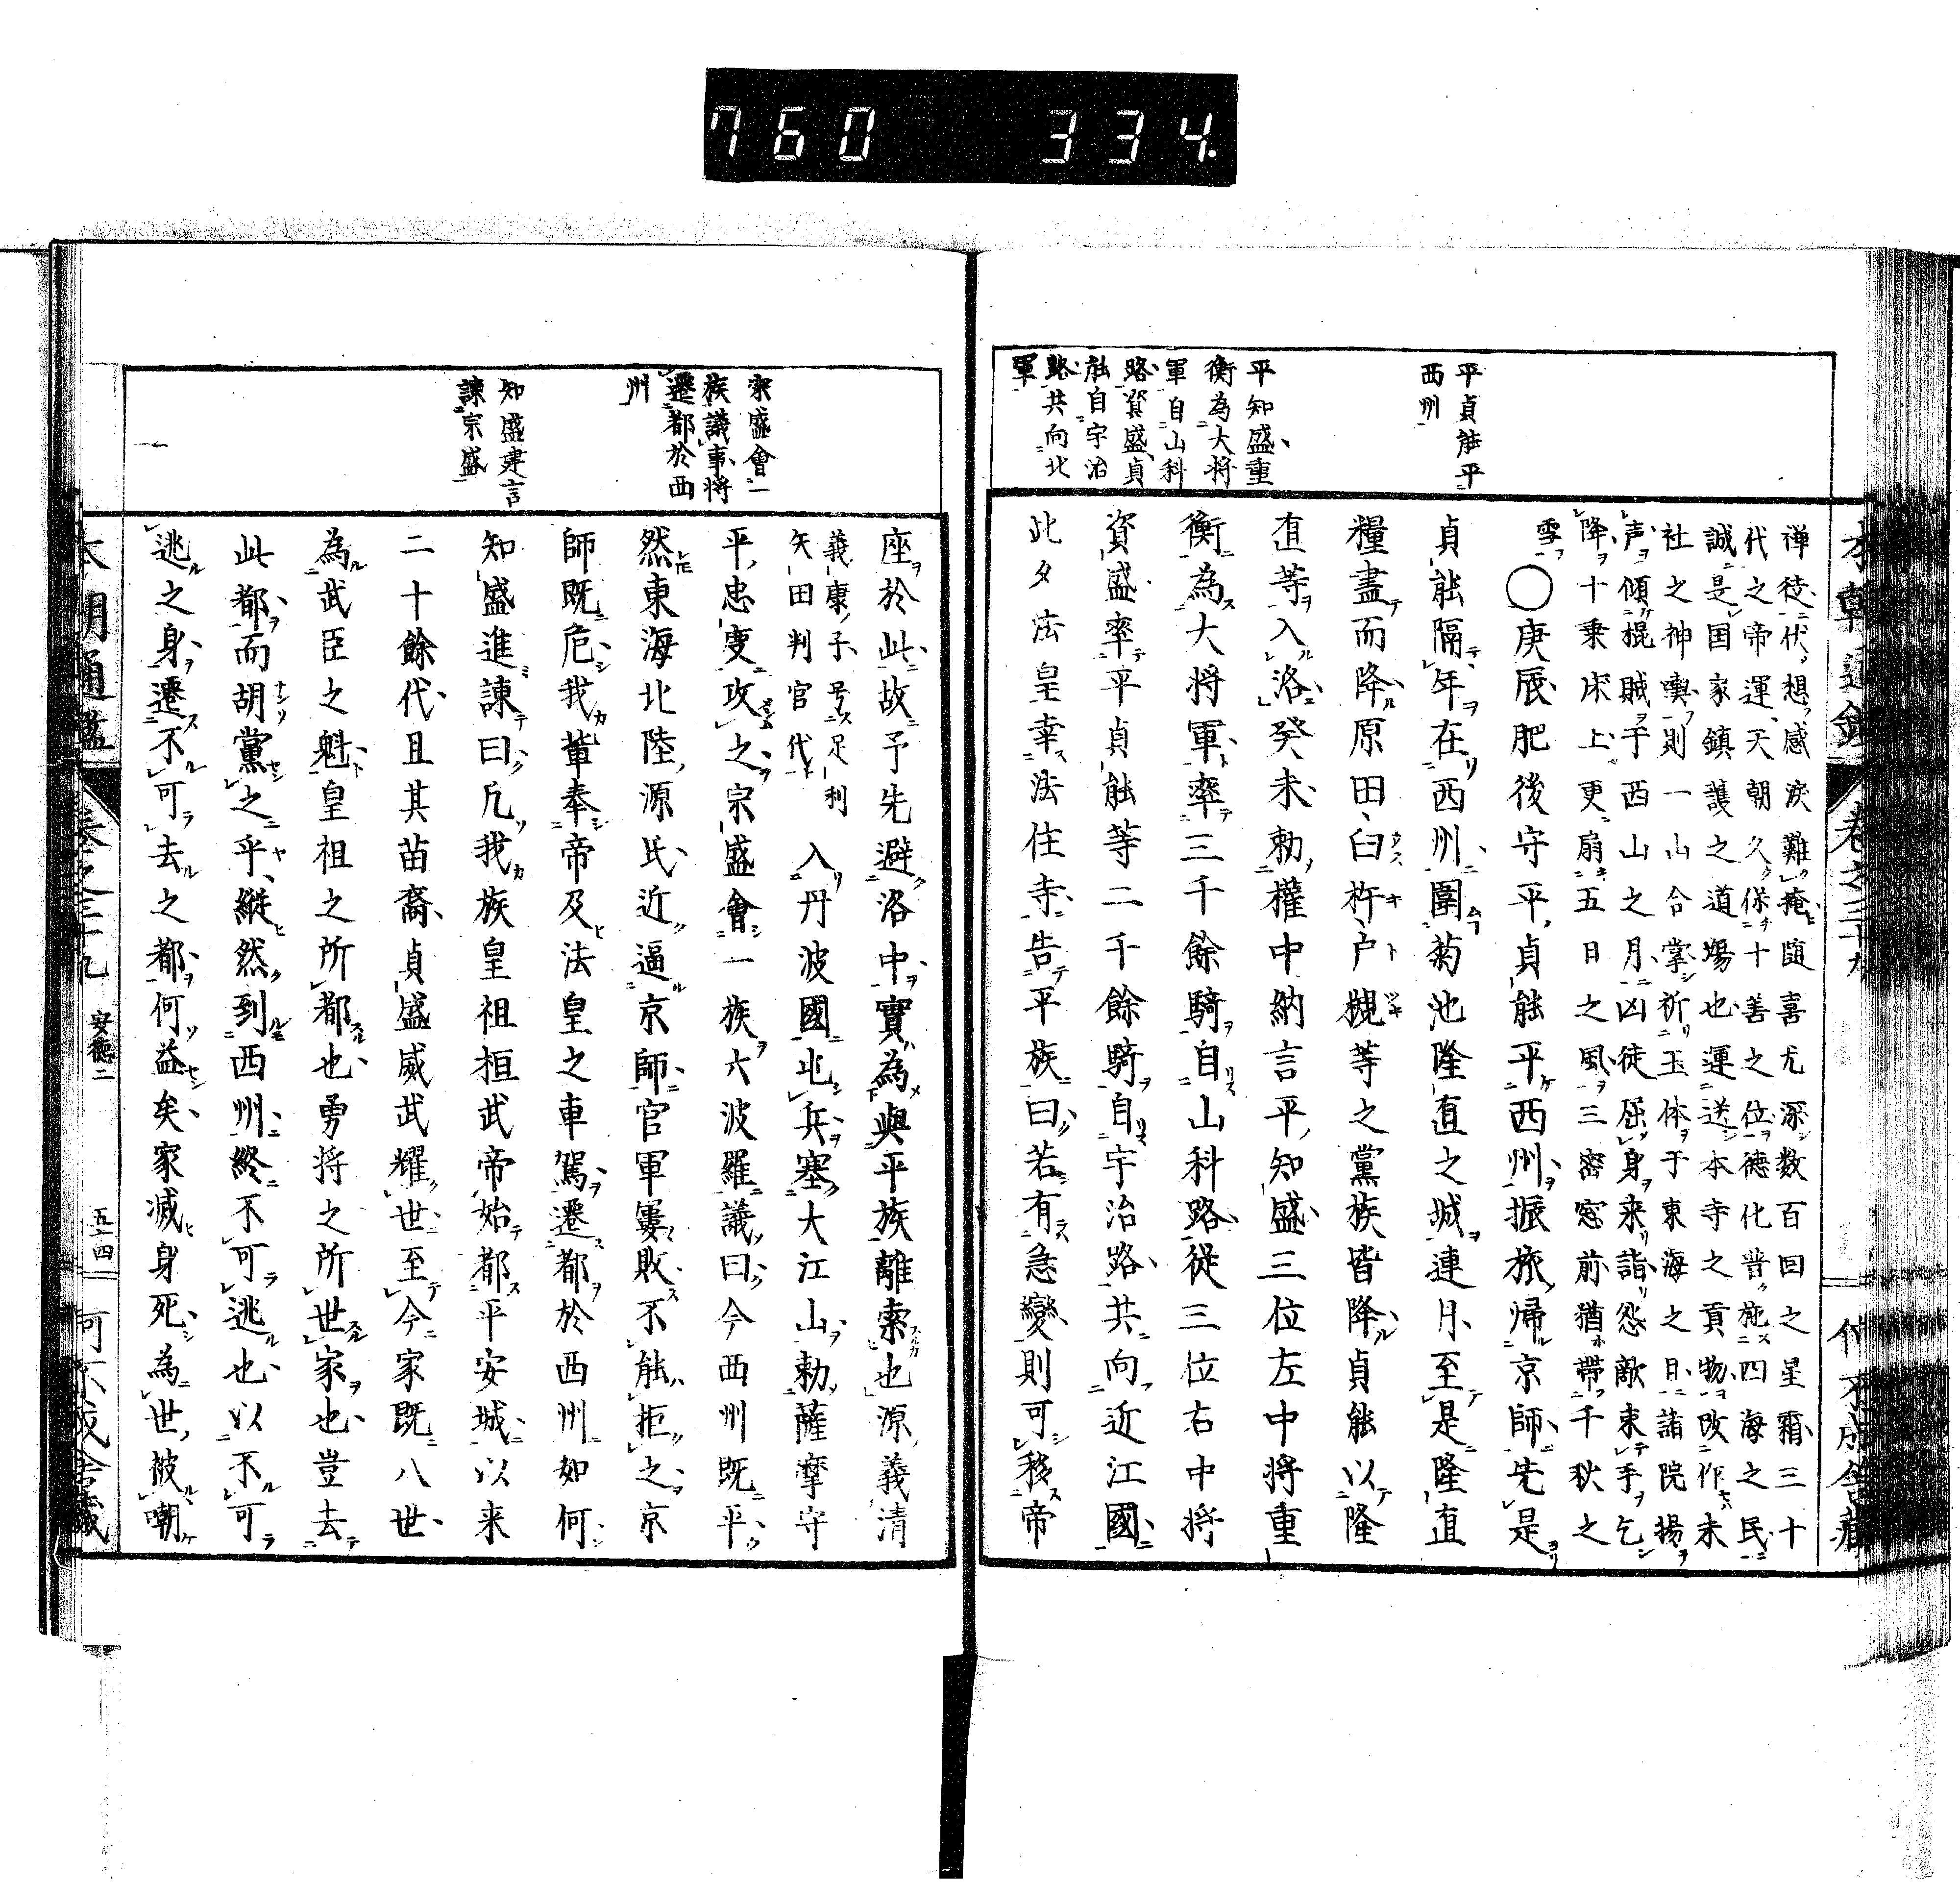 760 334.
平貞能平
西州
平知盛重
衡為大将
軍自山科
路資盛貞
能自宇治
路共向北
軍
禅徒伏想感涙難掩随喜尤深数百回之星霜三十
代之帝運天朝久保十善之位徳化普施四海之民
誠是国家鎮護之道場也運送本寺之貢物改作末
社之神輿則一山合掌祈玉体于東海之日諸院揚
声傾掍賊于西山之月凶徒屈身来詣怨敵束手乞
降十乗床上更扇五日之風三密窓前猶帯千秋之
雪○庚辰肥後守平貞能平西州振旅帰京師先是
貞能隔年在西州圍菊池隆直之城連月至是隆直
糧盡而降原田臼杵戸槻等之黨族皆降貞能以隆
直等入洛癸未勅權中納言平知盛三位左中将重
衡為大将軍率三千餘騎自山科路從三位右中将
資盛率平貞能等二千餘騎自宇治路共向近江國
此夕法皇幸法住寺告平族曰若有急變則可移帝
本朝通鑑 卷之三十九
宗盛會一
族議事将
遷都於西
州
知盛建言
諫宗盛
座於此故予先避洛中實為與平族離索也源義清
義康子号足利
矢田判官代
入丹波國屯兵塞大江山勅薩摩守
平忠度攻之宗盛會一族六波羅議曰今西州既平
然東海北陸源氏近逼京師官軍屢敗不能拒之京
師既危我輩奉帝及法皇之車駕遷都於西州如何
知盛進諫曰凡我族皇祖桓武帝始都平安城以来
二十餘代且其苗裔貞盛威武耀世至今家既八世
為武臣之魁皇祖之所都也勇将之所世家也豈去
此都而胡黨之乎縦然到西州終不可逃也以不可
逃之身遷不可去之都何益矣家滅身死為世被嘲
本朝通鑑 卷之三十九 安徳二 五十四